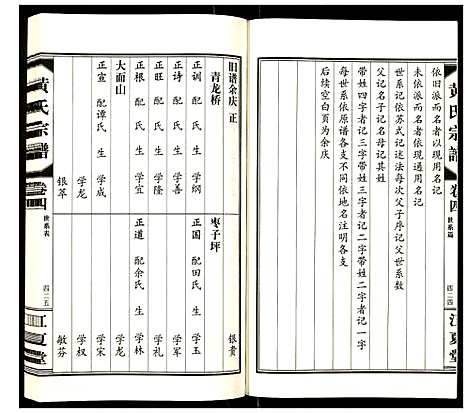 黄氏宗谱
卷四
世系篇
四二四
江夏堂
依旧派而名者以现用名记
未依派而名者依现通用名记
世系记依苏式记述法每次父子序记父世系
父记名子记名母记其姓
带姓四字者记三字带姓三字者记二字带姓二字者记一字
每世系依原谱各支不同依地名注明各支
后续空白页为记录页
旧谱余庆 正
青龙桥
正训 配 氏 生 学纲
正诗 配 氏 生 学善
正旺 配 氏 生 学隆
正根 配 氏 生 学宜
大面山
正宣 配谭氏 生 学成
学龙
银萃
银贵
枣子坪
正国 配田氏 生 学玉
学军
学礼
正道 配余氏 生 学林
学龙
学宋
学权
敏芬
黄氏宗谱
卷四
世系表
四二五
江夏堂